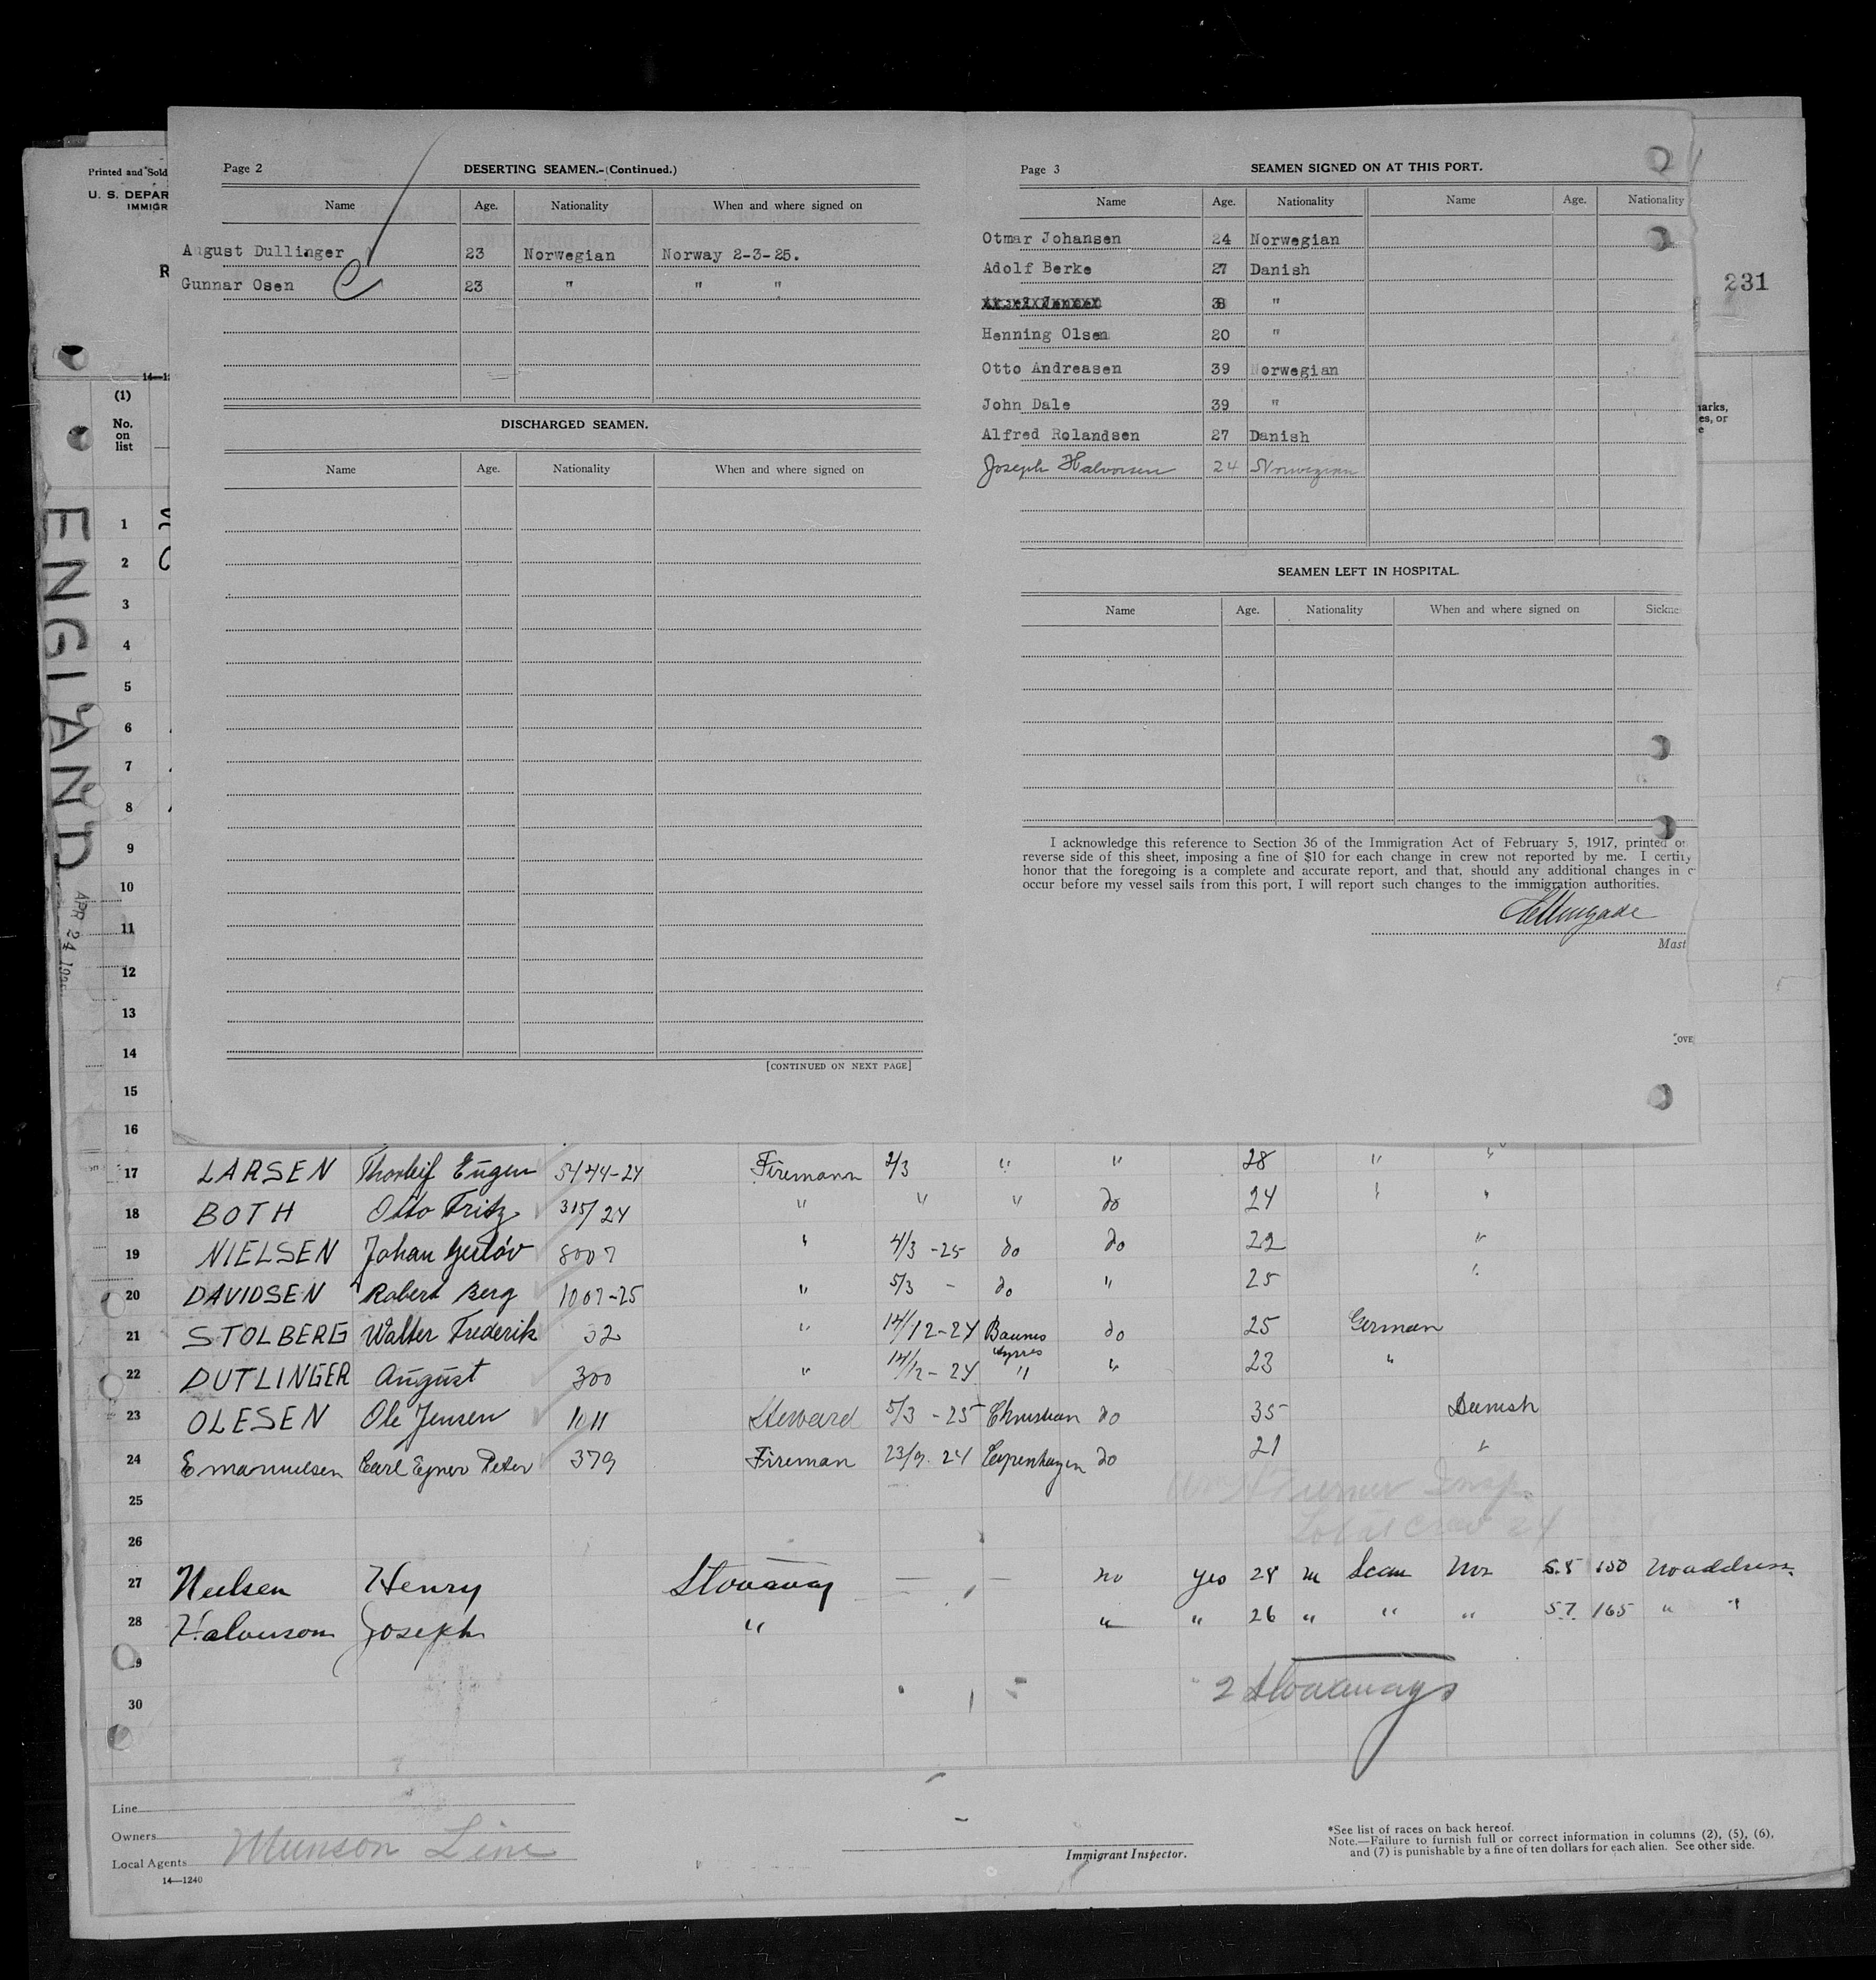 Printed and Sold
U. S. DEPAR
IMMIGR
R
14—1
(1)
No.
on
list
ENGLAND
APR 24
231
arks,
es, or
e
Page 2
DESERTING SEAMEN.—(Continued.)
Name Age. Nationality When and where signed on
August Dullinger 23 Norwegian Norway 2-3-25.
Gunnar Osen 23 " " "
DISCHARGED SEAMEN.
Name Age. Nationality When and where signed on
[CONTINUED ON NEXT PAGE]
Page 3
SEAMEN SIGNED ON AT THIS PORT.
Name Age. Nationality Name Age. Nationality
Otmar Johansen 24 Norwegian
Adolf Berke 27 Danish
38 "
Henning Olsen 20 "
Otto Andreasen 39 Norwegian
John Dale 39 "
Alfred Rolandsen 27 Danish
Joseph Halvorsen 24 Norwegian
SEAMEN LEFT IN HOSPITAL.
Name Age. Nationality When and where signed on Sickne
I acknowledge this reference to Section 36 of the Immigration Act of February 5, 1917, printed on
reverse side of this sheet, imposing a fine of $10 for each change in crew not reported by me. I certify
honor that the foregoing is a complete and accurate report, and that, should any additional changes in c
occur before my vessel sails from this port, I will report such changes to the immigration authorities.
Mast
OVE
1
2
3
4
5
6
7
8
9
10
11
12
13
14
15
16
17 LARSEN Thorleif Eugen 5444-24 Firemann 2/3 " " 28 " "
18 BOTH Otto Fritz 315/24 " " " do 24 " "
19 NIELSEN Johan 8007 " 4/3 -25 do do 22 "
20 DAVIDSEN Robert Berg 1007-25 " 5/3 - do " 25 "
21 STOLBERG Walter Frederik 32 " 14/12-24 Baunes Ayres do 25 German
22 DUTLINGER August 300 " 14/12-24 " " 23 "
23 OLESEN Ole Jensen 1011 Steward 5/3 -25 Christian do 35 Danish
24 Emanuelsen Carl Ejner Peter 379 Fireman 23/9. 24 Copenhagen do 21 "
25
Insp.
26
Total crew 24
27 Nielsen Henry Stowaway — — no yes 28 m Scan Nor 5.8 150 No address.
28 Halverson Joseph " " " 26 " " " 5.7. 165 " "
29
2 Stowaways
30
Line
Owners
Munson Line
Local Agents
14—1240
Immigrant Inspector.
*See list of races on back hereof.
Note.—Failure to furnish full or correct information in columns (2), (5), (6),
and (7) is punishable by a fine of ten dollars for each alien. See other side.